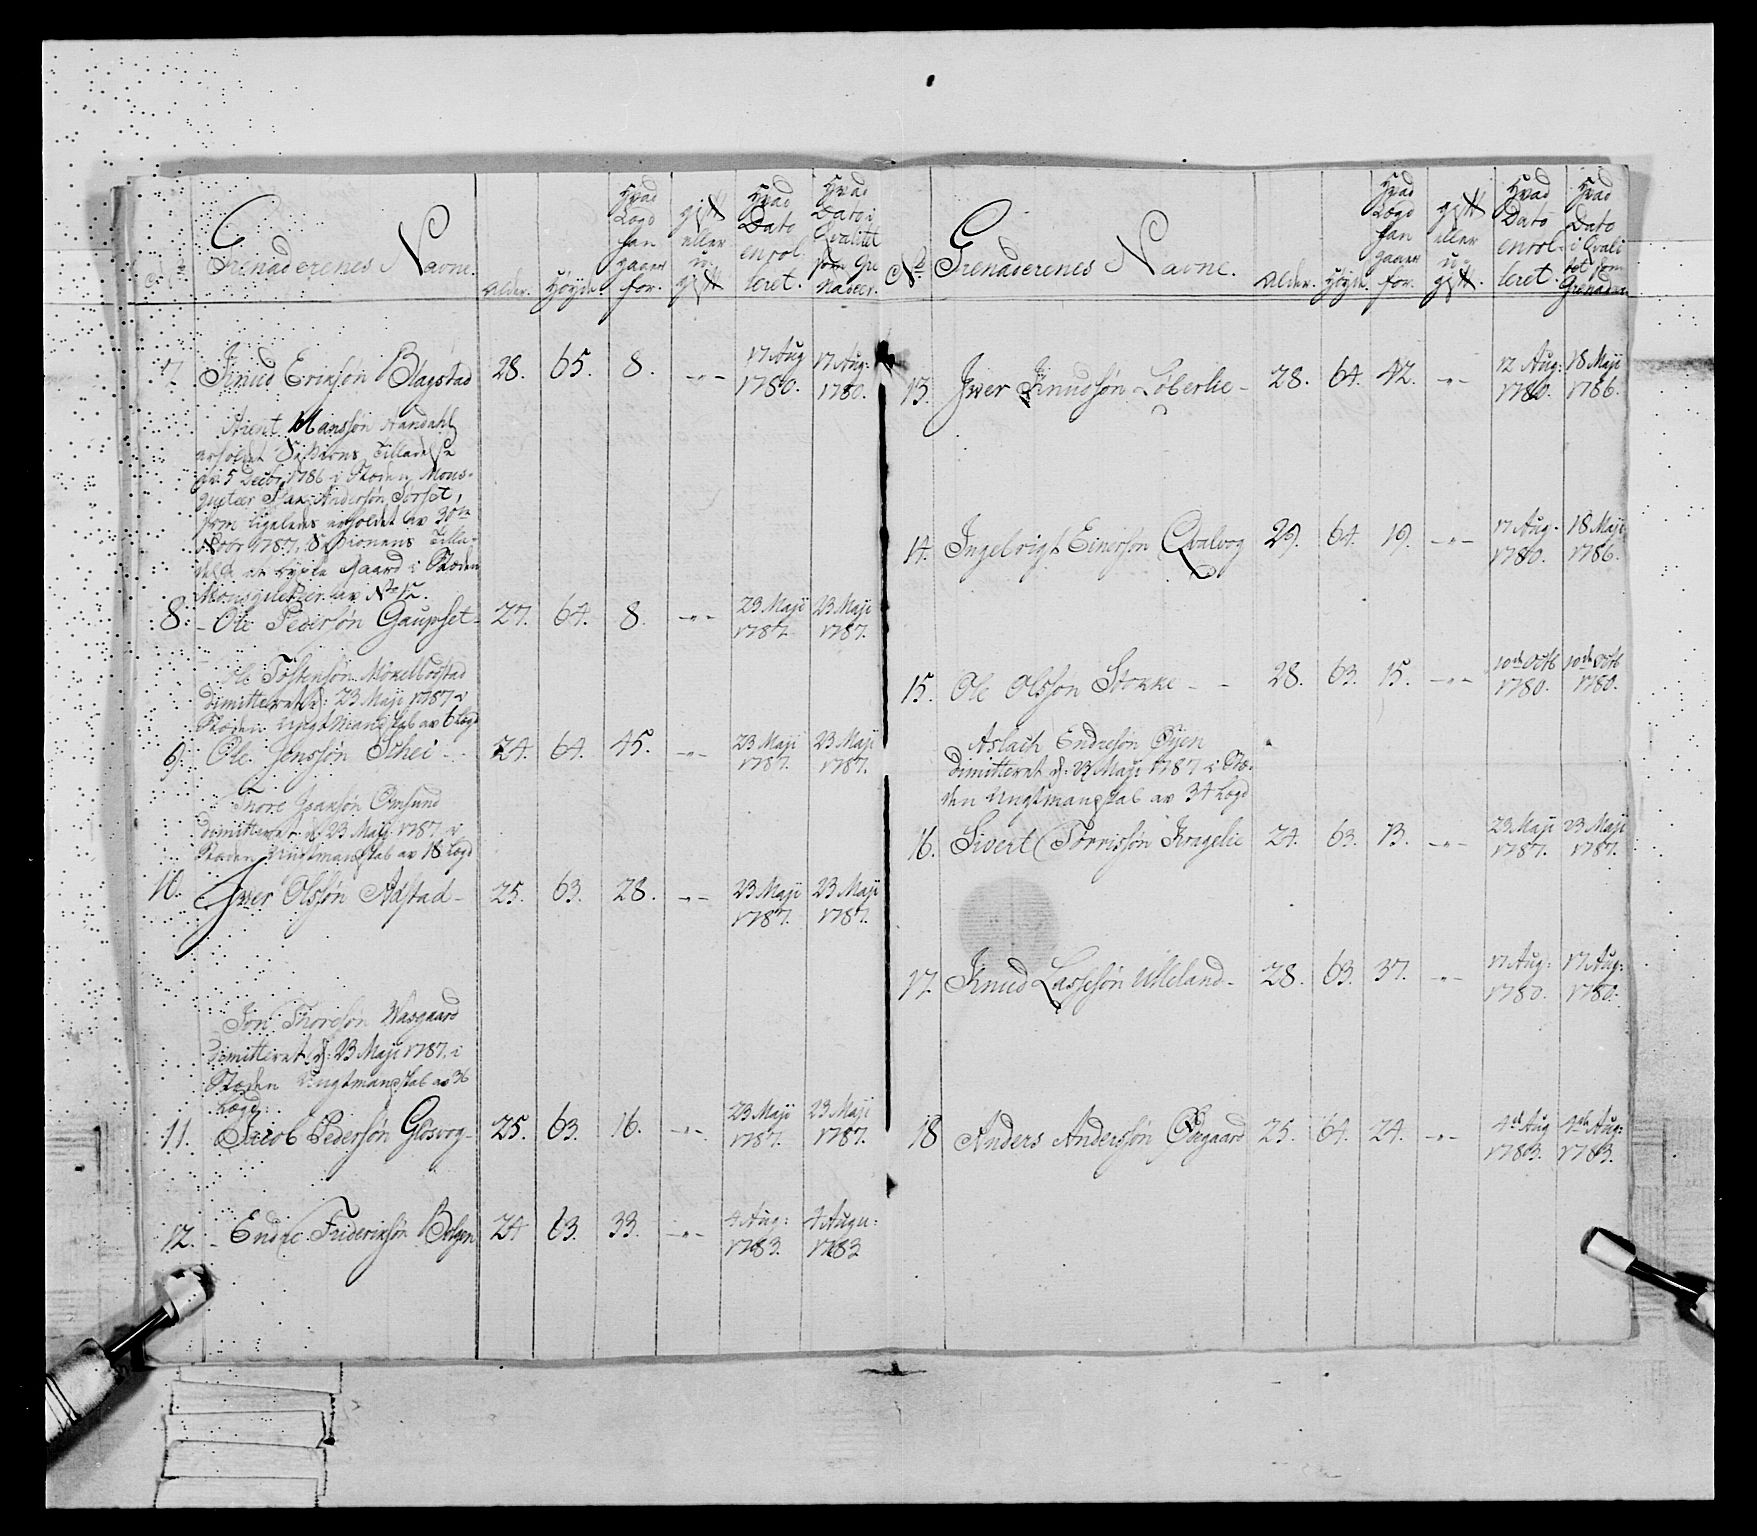 Grenaderenes Navne.
Alder.
Høyde.
Hvad
Lægd
han
gaaer
for.
gift
eller
u-
gift
Hvad
Dato
enrol-
leret.
Hvad
Dato i
Qvalitet
som Gre
nadeer.
7. Knud Erichsøn Blagstad 28. 65. 8. -"- 17 Aug 1780. 17 Aug: 1780.
Hansøn
erholdet Sessions Tilladelse
av 5 Decbr 1786 i Stæden Mous-
quetær Andersøn
som ligeledes erholdet av 30te
Novbr 1787, Sessionens Tilla-
delse Gaard i Stæden
av No
8. - Ole Pedersøn Gaupset - 27. 64. 8. -"- 23 Maji 1787. 23 Maji 1787.
Ole Tostensøn
dimitteret d: 23 Maji 1787 i
Stæden Ungtmandskab av 6 Lægd
9. Ole Jenssøn Schei - 24. 64. 45. -"- 23 Maji 1787. 23 Maji 1787.
Thore Ivarsøn Omsund
dimitteret d 23 Maji 1787 i
Stæden Ungtmandskab av 18 Lægd
10. Iver Olssøn Adstad - 25. 63. 28. -"- 23 Maji 1787. 23 Maji 1787.
Jon Thoresøn Waagaard
dimitteret d: 23 Maji 1787, i
Stæden Ungtmandskab av 36
Lægd:
11. Jacob Pedersøn Glosvog - 25. 63. 16. -"- 23 Maji 1787. 23 Maji 1787.
12. - Endre Friderichsøn Bolgen 24 63. 33. -"- 4 Aug: 1783. 4 Augu: 1783
No
Grenaderenes Navne.
Alder.
Høyde.
Hvad
Lægd
han
gaaer
for.
gift
eller
u-
gift.
Hvad
Dato
enrol-
leret.
Hvad
Dato
i Qvali
tet som
Grenadeer
13. Iver Knudsøn Loberlie - 28. 64. 42. -"- 12 Aug: 1780. 18 Maji 1786.
14. Ingebrigt Einersøn Qvalvog 29. 64. 19. -"- 17 Aug: 1780. 18 Maji 1786.
15. Ole Olsson Stokke - - 28. 63. 15. -"- 10de Octb 1780. 10de Octb 1780.
Aslach Endresøn Øyen
dimitteret d: 23 Maji 1787 i Stæ-
den Ungtmandskab av 34 Lægd
16. Sivert Torrissøn Kragelie 24. 63. 13. -"- 23 Maji 1787. 23 Maji 1787.
17. Knud Lassesøn Ulleland - 28. 63. 37. -"- 17 Aug: 1780. 17 Aug: 1780.
18 Anders Andersøn Ødegaard 25. 64. 24. -"- 4de Aug 1783. 4de Aug: 1783.